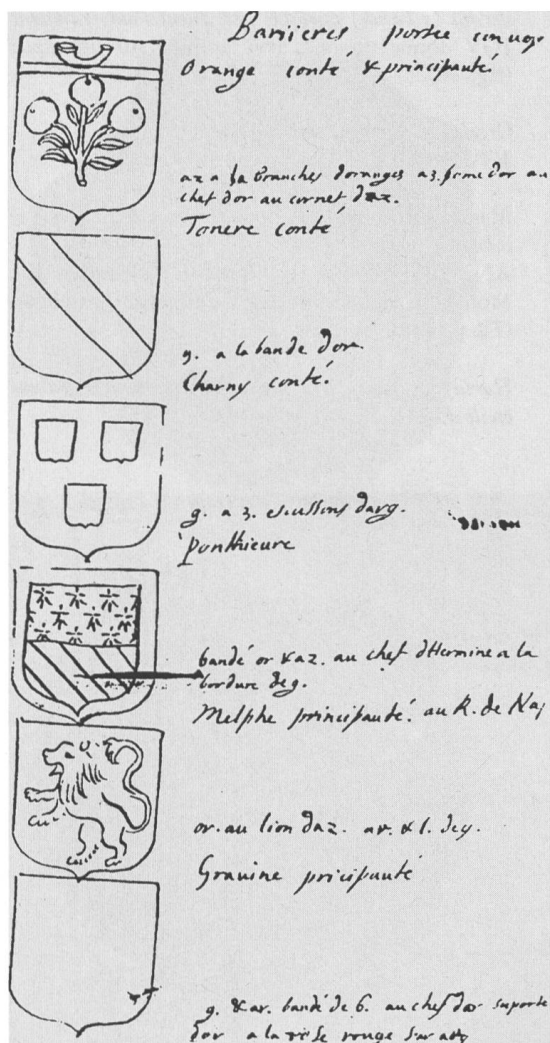 Banieres portee
Orange conte & principauté.
az a la branches doranges a 3. pome dor au
chef dor au cornet daz.
Tonere conté
g. a la bande dor
Charny conté.
g. a 3. escussons darg.
ponthieure
bandé or & az. au chef dHermine a la
bordure de g.
Melphe principauté. au R. de Nap
or. au lion daz. ar. & l. de g.
Gravine pricipauté
g. & ar. bandé de 6. au chef dor suporté
dor a la rose rouge sur